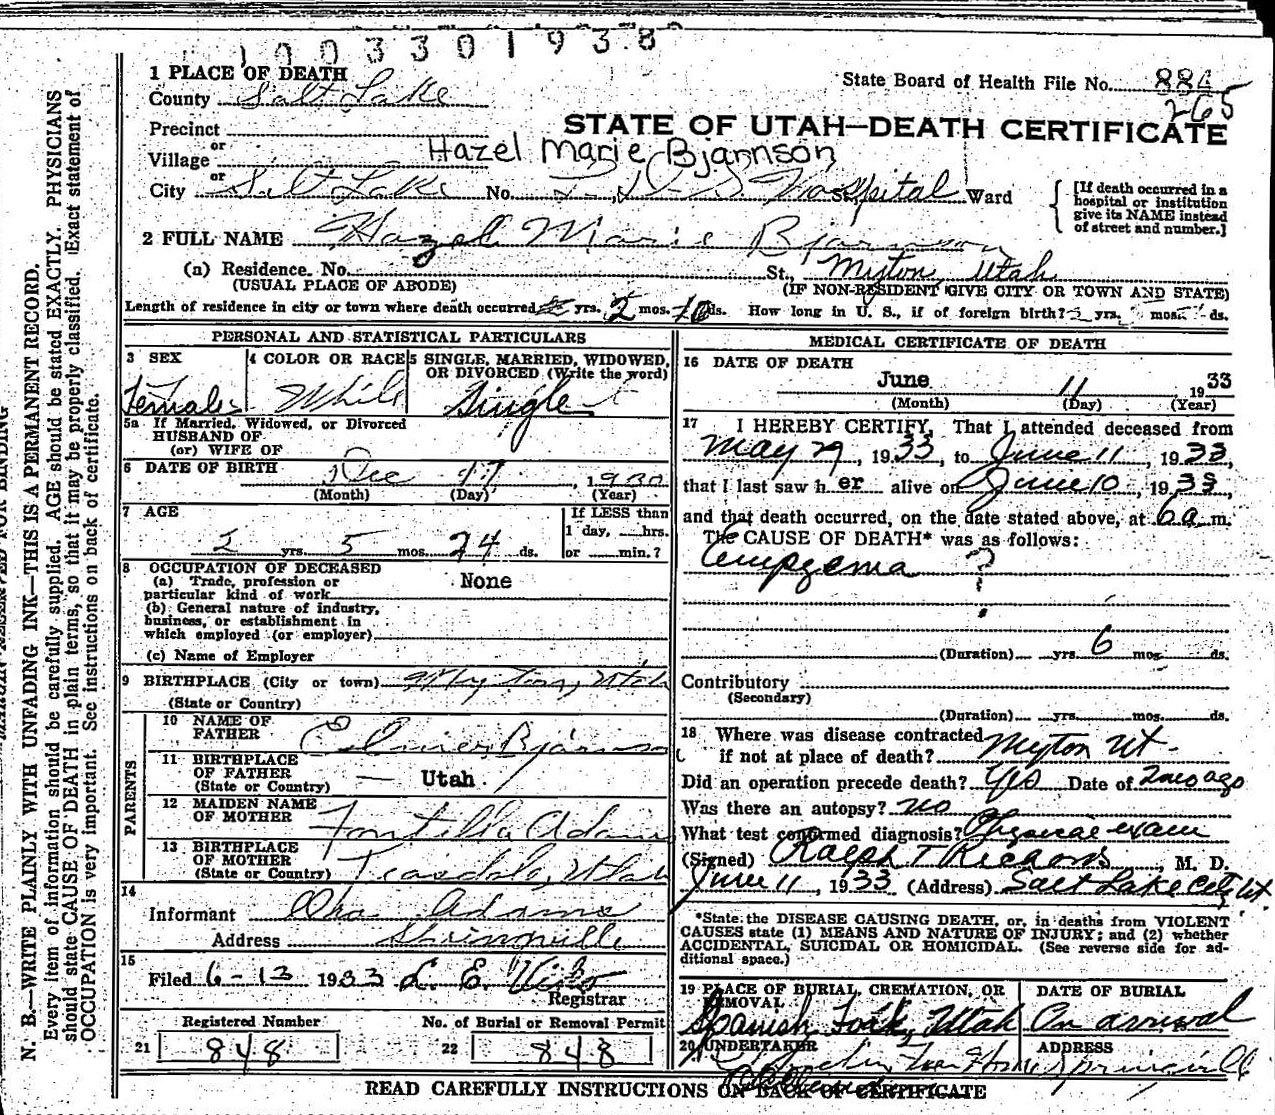 1003301938
State Board of Health File No. 884
265
1 PLACE OF DEATH
County Salt Lake
STATE OF UTAH—DEATH CERTIFICATE
Precinct
or
Village
Hazel Marie Bjarnson
or
City Salt Lake No. L. D. S. Hospital St. Ward
[If death occurred in a
hospital or institution
give its NAME instead
of street and number.]
2 FULL NAME Hazel Marie Bjarnson
(a) Residence. No. St., Myton, Utah
(USUAL PLACE OF ABODE) (IF NON-RESIDENT GIVE CITY OR TOWN AND STATE)
Length of residence in city or town where death occurred yrs. 2 mos. 10 ds. How long in U. S., if of foreign birth? yrs. mos. ds.
PERSONAL AND STATISTICAL PARTICULARS
3 SEX
Female
4 COLOR OR RACE
White
5 SINGLE, MARRIED, WIDOWED,
OR DIVORCED (Write the word)
Single
5a If Married, Widowed, or Divorced
HUSBAND OF
(or) WIFE OF
6 DATE OF BIRTH Dec 17, 1930
(Month) (Day) (Year)
7 AGE
2 yrs. 5 mos. 24 ds.
If LESS than
1 day, hrs.
or min.?
8 OCCUPATION OF DECEASED
(a) Trade, profession or
particular kind of work None
(b) General nature of industry,
business, or establishment in
which employed (or employer)
(c) Name of Employer
9 BIRTHPLACE (City or town) Myton, Utah
(State or Country)
PARENTS
10 NAME OF
FATHER Elmer Bjarnson
11 BIRTHPLACE
OF FATHER
(State or Country) — Utah
12 MAIDEN NAME
OF MOTHER Fontilla Adams
13 BIRTHPLACE
OF MOTHER
(State or Country) Teasdale, Utah
14
Informant Ora Adams
Address Springville
15
Filed 6-13 1933 L. E.
Registrar
Registered Number
21 848
No. of Burial or Removal Permit
22 848
MEDICAL CERTIFICATE OF DEATH
16 DATE OF DEATH
June 11 1933
(Month) (Day) (Year)
17 I HEREBY CERTIFY, That I attended deceased from
May 29, 1933, to June 11, 1933,
that I last saw h er alive on June 10, 1933
and that death occurred, on the date stated above, at 6 a m.
The CAUSE OF DEATH* was as follows:
Empyema ?
(Duration) yrs. 6 mos. ds.
Contributory
(Secondary)
(Duration) yrs. mos. ds.
18 Where was disease contracted
if not at place of death? Myton Ut
Did an operation precede death? Yes Date of 2 mo ago
Was there an autopsy? no
What test confirmed diagnosis? Physical exam
(Signed) Ralph T Richards, M. D.
June 11, 1933 (Address) Salt Lake City Ut.
*State the DISEASE CAUSING DEATH, or, in deaths from VIOLENT
CAUSES state (1) MEANS AND NATURE OF INJURY; and (2) whether
ACCIDENTAL, SUICIDAL OR HOMICIDAL. (See reverse side for ad-
ditional space.)
19 PLACE OF BURIAL, CREMATION, OR
REMOVAL
Spanish Fork, Utah
DATE OF BURIAL
On arrival
20 UNDERTAKER
ADDRESS
Springville
READ CAREFULLY INSTRUCTIONS ON BACK OF CERTIFICATE
MARGIN RESERVED FOR BINDING
N. B.—WRITE PLAINLY WITH UNFADING INK—THIS IS A PERMANENT RECORD.
Every item of information should be carefully supplied. AGE should be stated EXACTLY. PHYSICIANS
should state CAUSE OF DEATH in plain terms, so that it may be properly classified. Exact statement of
OCCUPATION is very important. See instructions on back of certificate.